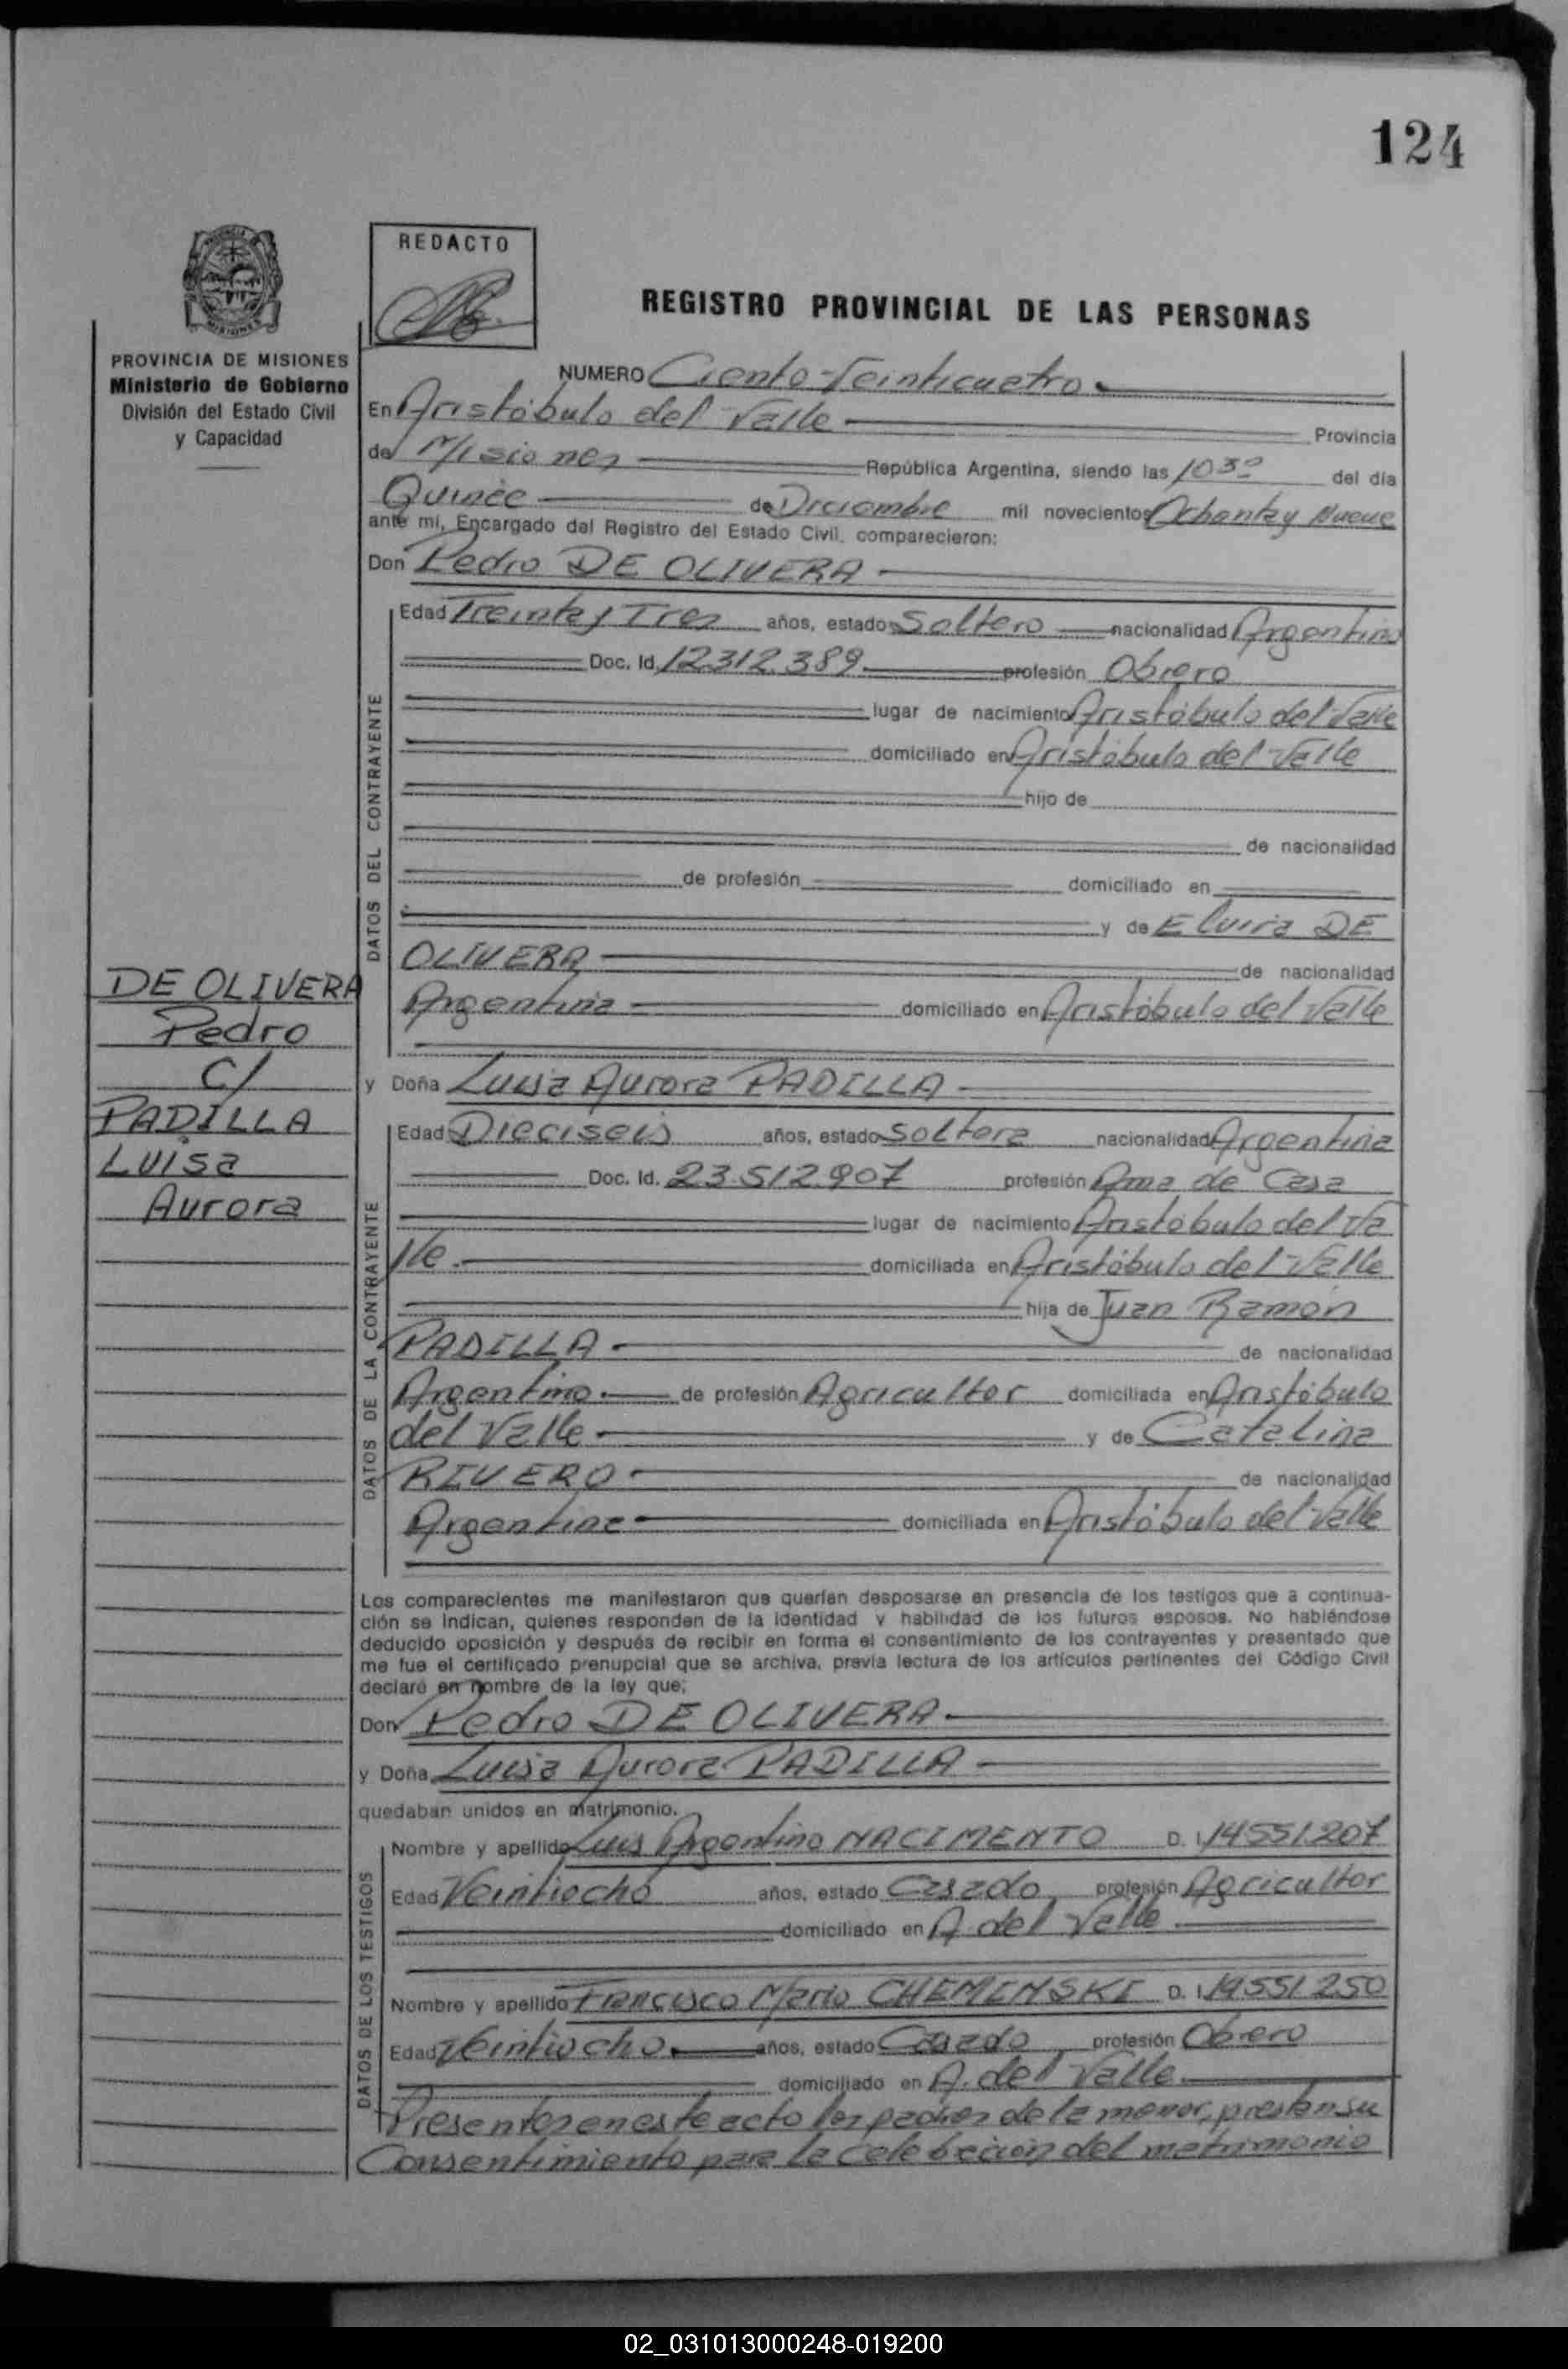 124
REDACTO
REGISTRO PROVINCIAL DE LAS PERSONAS
PROVINCIA DE MISIONES
Ministerio de Gobierno
División del Estado Civil
y Capacidad
NUMERO Ciento Veinticuatro
En Aristóbulo del Valle Provincia
de Misiones República Argentina, siendo las 10 30 del día
Quince de Diciembre mil novecientos Ochenta y Nueve
ante mí, Encargado del Registro del Estado Civil, comparecieron:
Don Pedro DE OLIVERA
Edad Treinta y Tres años, estado Soltero nacionalidad Argentino
Doc. Id. 12.312.389 profesión Obrero
lugar de nacimiento Aristóbulo del Valle
domiciliado en Aristóbulo del Valle
hijo de
de nacionalidad
de profesión domiciliado en
y de Elvira DE
OLIVERA de nacionalidad
Argentina domiciliado en Aristóbulo del Valle
DATOS DEL CONTRAYENTE
DE OLIVERA
Pedro
C/
PADILLA
Luisa
Aurora
y Doña Luisa Aurora PADILLA
Edad Dieciseis años, estado Soltera nacionalidad Argentina
Doc. Id. 23.512.907 profesión Ama de Casa
lugar de nacimiento Aristóbulo del Va
lle domiciliada en Aristóbulo del Valle
hija de Juan Ramón
PADILLA de nacionalidad
Argentino de profesión Agricultor domiciliada en Aristóbulo
del Valle y de Catalina
RIVERO de nacionalidad
Argentina domiciliada en Aristóbulo del Valle
DATOS DE LA CONTRAYENTE
Los comparecientes me manifestaron que querían desposarse en presencia de los testigos que a continua-
ción se indican, quienes responden de la identidad y habilidad de los futuros esposos. No habiéndose
deducido oposición y después de recibir en forma el consentimiento de los contrayentes y presentado que
me fue el certificado prenupcial que se archiva, previa lectura de los artículos pertinentes del Código Civil
declaré en nombre de la ley que;
Don Pedro DE OLIVERA
y Doña Luisa Aurora PADILLA
quedaban unidos en matrimonio.
Nombre y apellido Luis Argentino NACIMENTO D. I. 14551207
Edad Veintiocho años, estado Casado profesión Agricultor
domiciliado en A. del Valle
Nombre y apellido Francisco Mario CHEMENSKI D. I. 14551250
Edad Veintiocho años, estado Casado profesión Obrero
domiciliado en A. del Valle
DATOS DE LOS TESTIGOS
Presentes en este acto los padres de la menor, prestan su
Consentimiento para la celebración del matrimonio
02_031013000248-019200